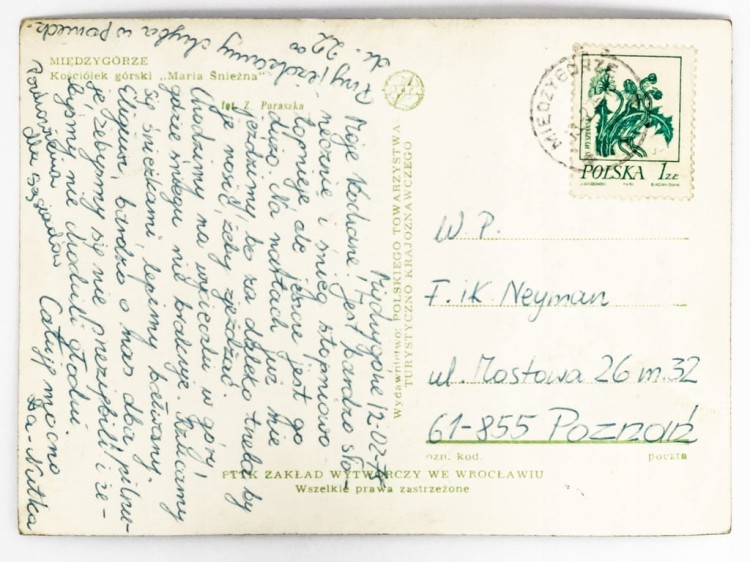 MIĘDZYGÓRZE
Kościółek górski „Maria Śnieżna"
fot. Z. Paraszka
Międzygórze 12.02.
Moje Kochane! Jest bardzo sło-
necznie i śnieg stopniowo
topnieje ale jeszcze jest go
dużo. Na nartach już nie
jeździmy, bo za daleko trzeba by
je nosić, żeby zjeżdżać.
Chodzimy na wycieczki w góry,
gdzie śniegu nie brakuje. Rzucamy
się śnieżkami, lepimy bałwany.
bardzo o nas dba, pilnu-
je, żebyśmy się nie przeziębili i że-
byśmy nie chodzili głodni.
Całuję mocno
Iza-Nutka
Pozdrowienia
dla sąsiadów
Przyjeżdżamy chyba w poniedz.
dn. 22
Wydawnictwo: POLSKIEGO TOWARZYSTWA
TURYSTYCZNO KRAJOZNAWCZEGO
MIĘDZYGÓRZE
POLSKA 1 ZŁ
W. P.
F. i K. Neyman
ul. Mostowa 26 m. 32
61-855 Poznań
ozn. kod. poczta
PTTK ZAKŁAD WYTWÓRCZY WE WROCŁAWIU
Wszelkie prawa zastrzeżone